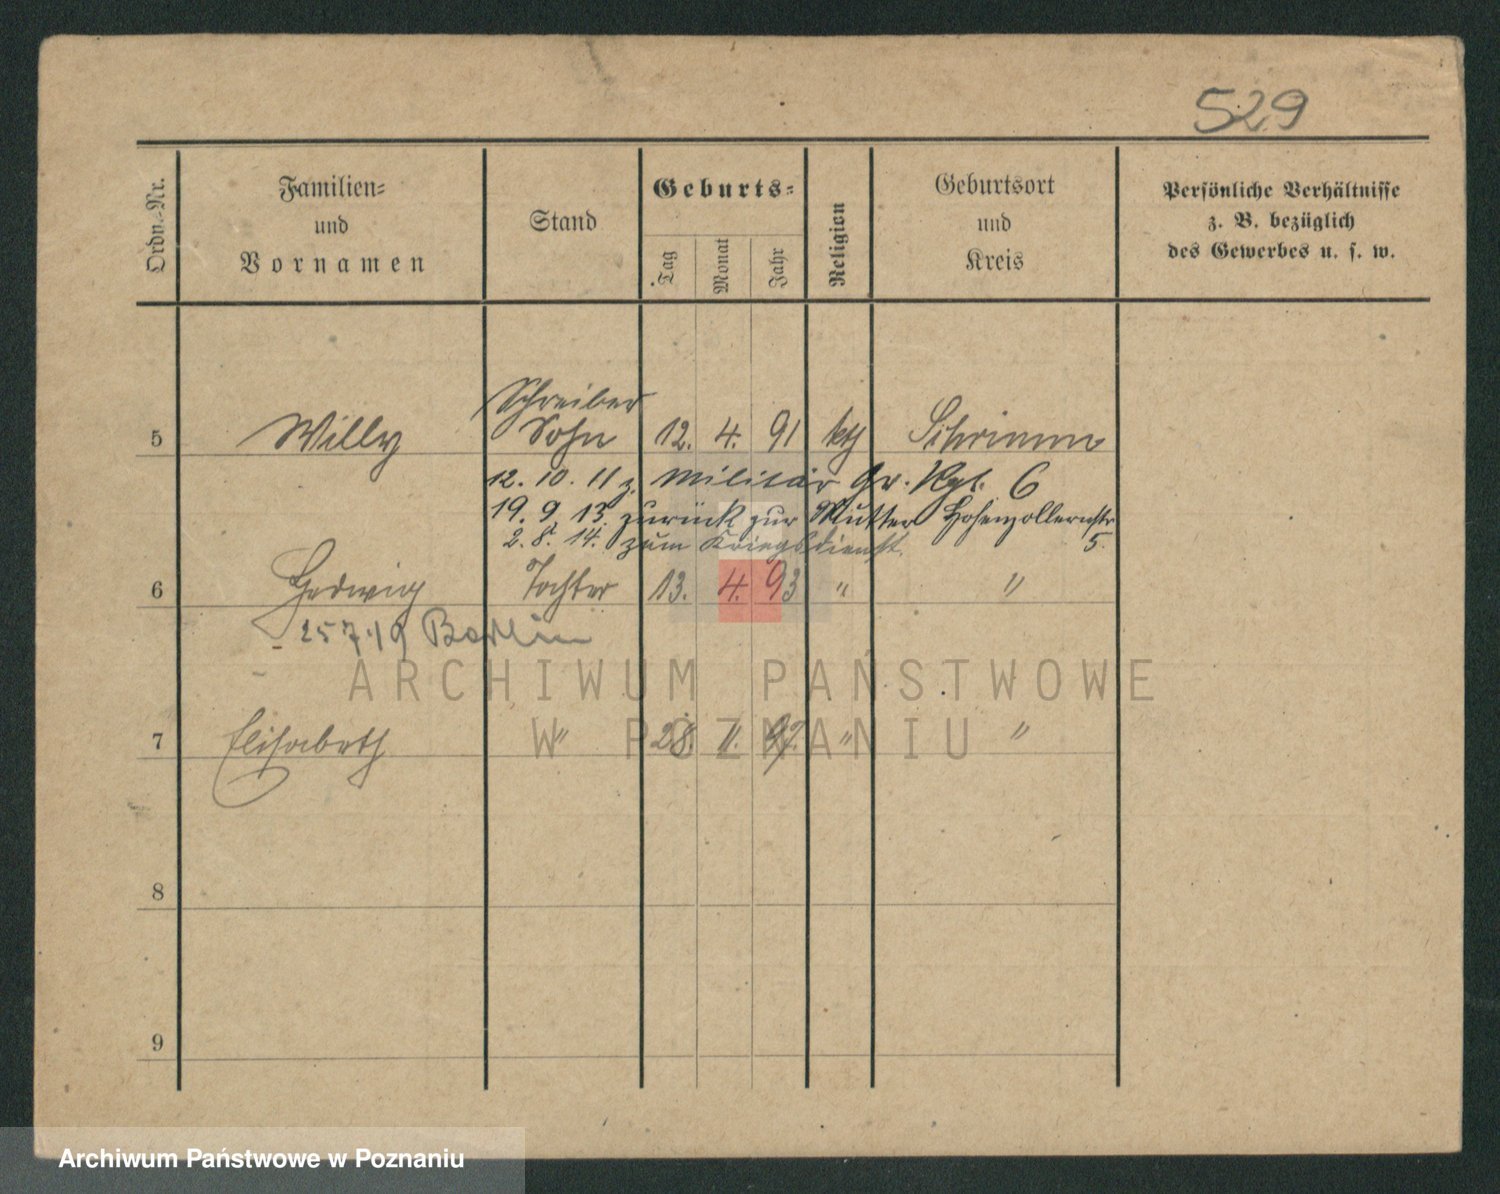 529
Ordn.-Nr.
Familien-
und
Vornamen
Stand
Geburts-
Tag
Monat
Jahr
Religion
Geburtsort
und
Kreis
Persönliche Verhältnisse
z. B. bezüglich
des Gewerbes u. s. w.
Schreiber
5 Willy Sohn 12. 4. 91 kth Schrimm
12. 10. 11 z. Militär Gr. Rgt. 6
19. 9. 13. zurück zur Mutter Hohenzollernstr
2. 8. 14. zum Kriegsdienst. 5.
6 Hedwig Tochter 13. 4. 93 " "
25 7 19 Berlin
ARCHIWUM PAŃSTWOWE
7 Elisabeth " 28. 11. 97. " "
W POZNANIU
8
9
Archiwum Państwowe w Poznaniu